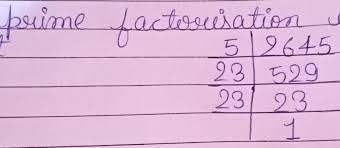 prime factorisation
5 | 2645
23 | 529
23 | 23
1